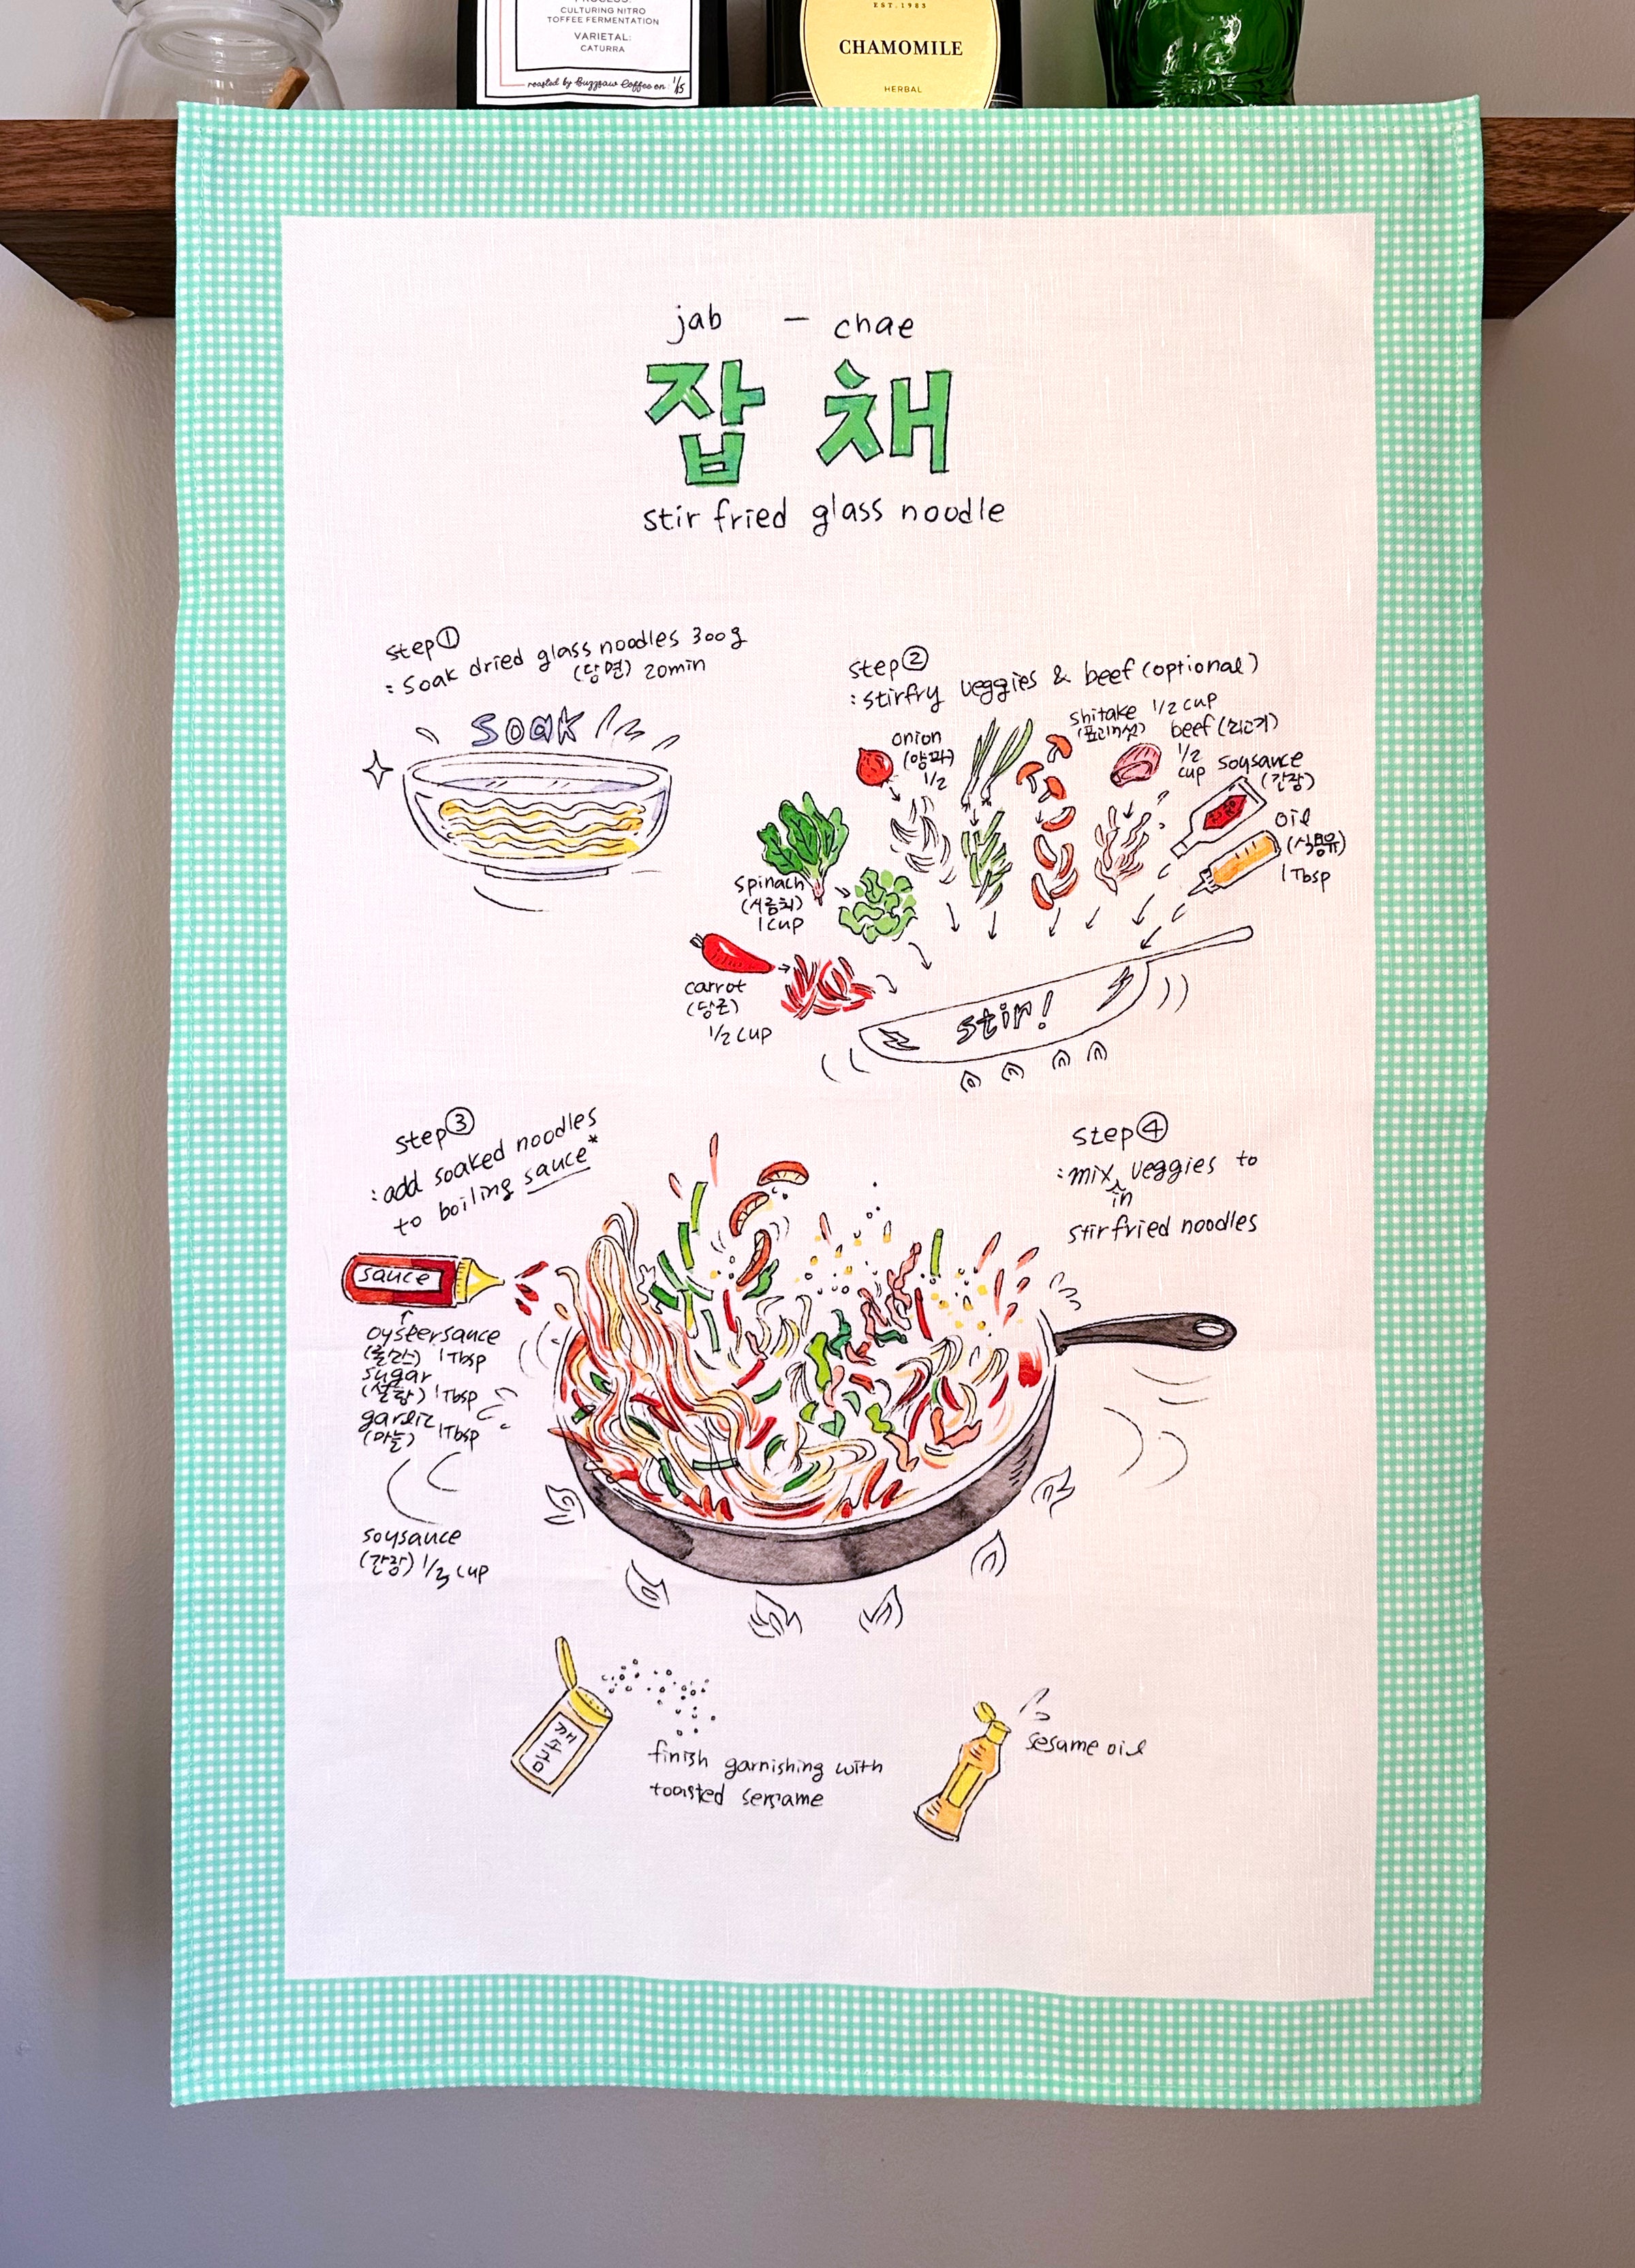 PROCESS:
CULTURING NITRO
TOFFEE FERMENTATION
VARIETAL:
CATURRA
roasted by Buzzsaw Coffee on 1/15
EST. 1985
CHAMOMILE
HERBAL
jab - chae
잡채
stir fried glass noodle
step①
: soak dried glass noodles 300g
(당면) 20min
SOAK
step②
: stirfry veggies & beef (optional)
onion
(양파)
1/2
shitake 1/2 cup
(표고버섯)
beef (쇠고기)
1/2
cup
soysauce
(간장)
oil
(식용유)
1 Tbsp
spinach
(시금치)
1 cup
carrot
(당근)
1/2 cup
stir!
step③
: add soaked noodles
to boiling sauce*
sauce
oystersauce
(굴소스) 1Tbsp
sugar
(설탕) 1Tbsp
garlic
(마늘) 1Tbsp
soysauce
(간장) cup
step④
: mix in veggies to
stirfried noodles
깨소금
finish garnishing with
toasted sesame
sesame oil